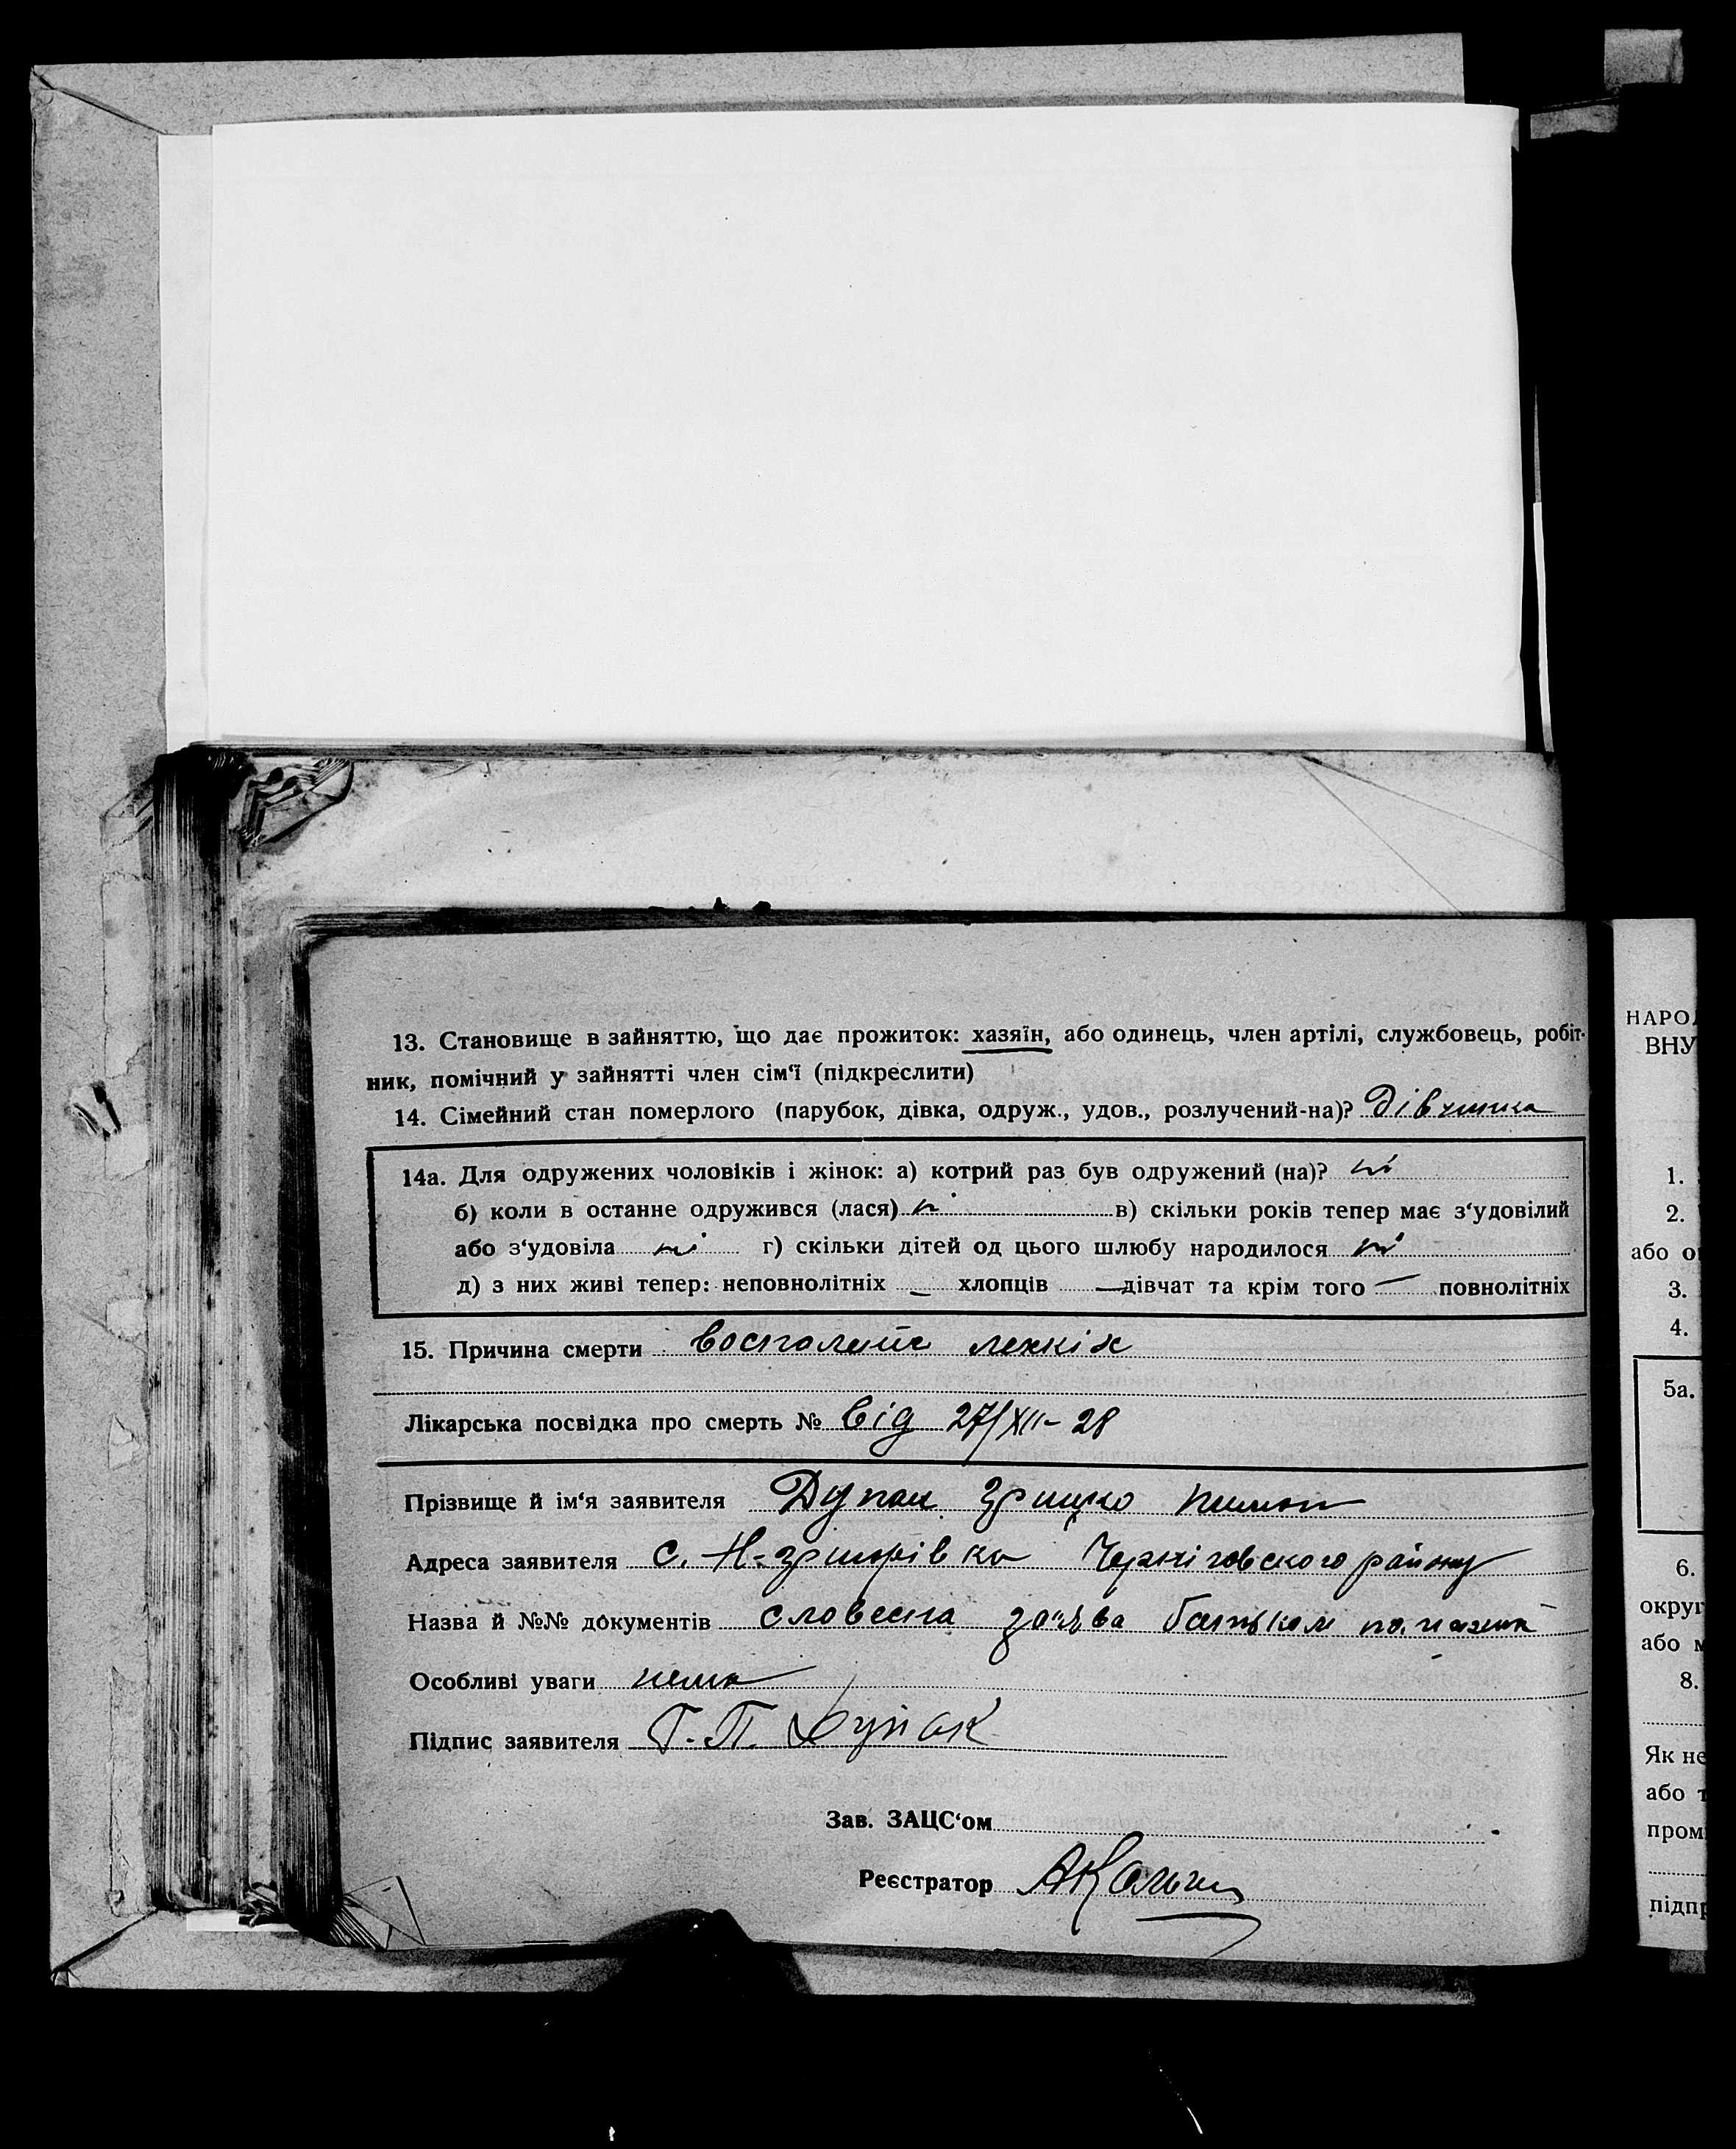 13. Становище в зайняттю, що дає прожиток: хазяїн, або одинець, член артілі, службовець, робіт-
ник, помічний у зайнятті член сім‘ї (підкреслити)
14. Сімейний стан померлого (парубок, дівка, одруж., удов., розлучений-на)? Дівчина
14а. Для одружених чоловіків і жінок: а) котрий раз був одружений (на)? ні
б) коли в останне одружився (лася) ні в) скільки років тепер має з‘удовілий
або з‘удовіла ні г) скільки дітей од цього шлюбу народилося ні
д) з них живі тепер: неповнолітніх — хлопців — дівчат та крім того — повнолітніх
15. Причина смерти воспаленіє легкіх
Лікарська посвідка про смерть № від 27/XII-28
Прізвище й ім‘я заявителя Дупак Грицко
Адреса заявителя с. Н-Григорівка Черніговского району
Назва й №№ документів словесна заява батьком
Особливі уваги нема
Підпис заявителя Г. П. Дупак
Зав. ЗАЦС‘ом
Реєстратор
НАРОД
ВНУ
1.
2.
або о
3.
4.
5а.
6.
округ
або м
8.
Як не
або т
пром
підпр